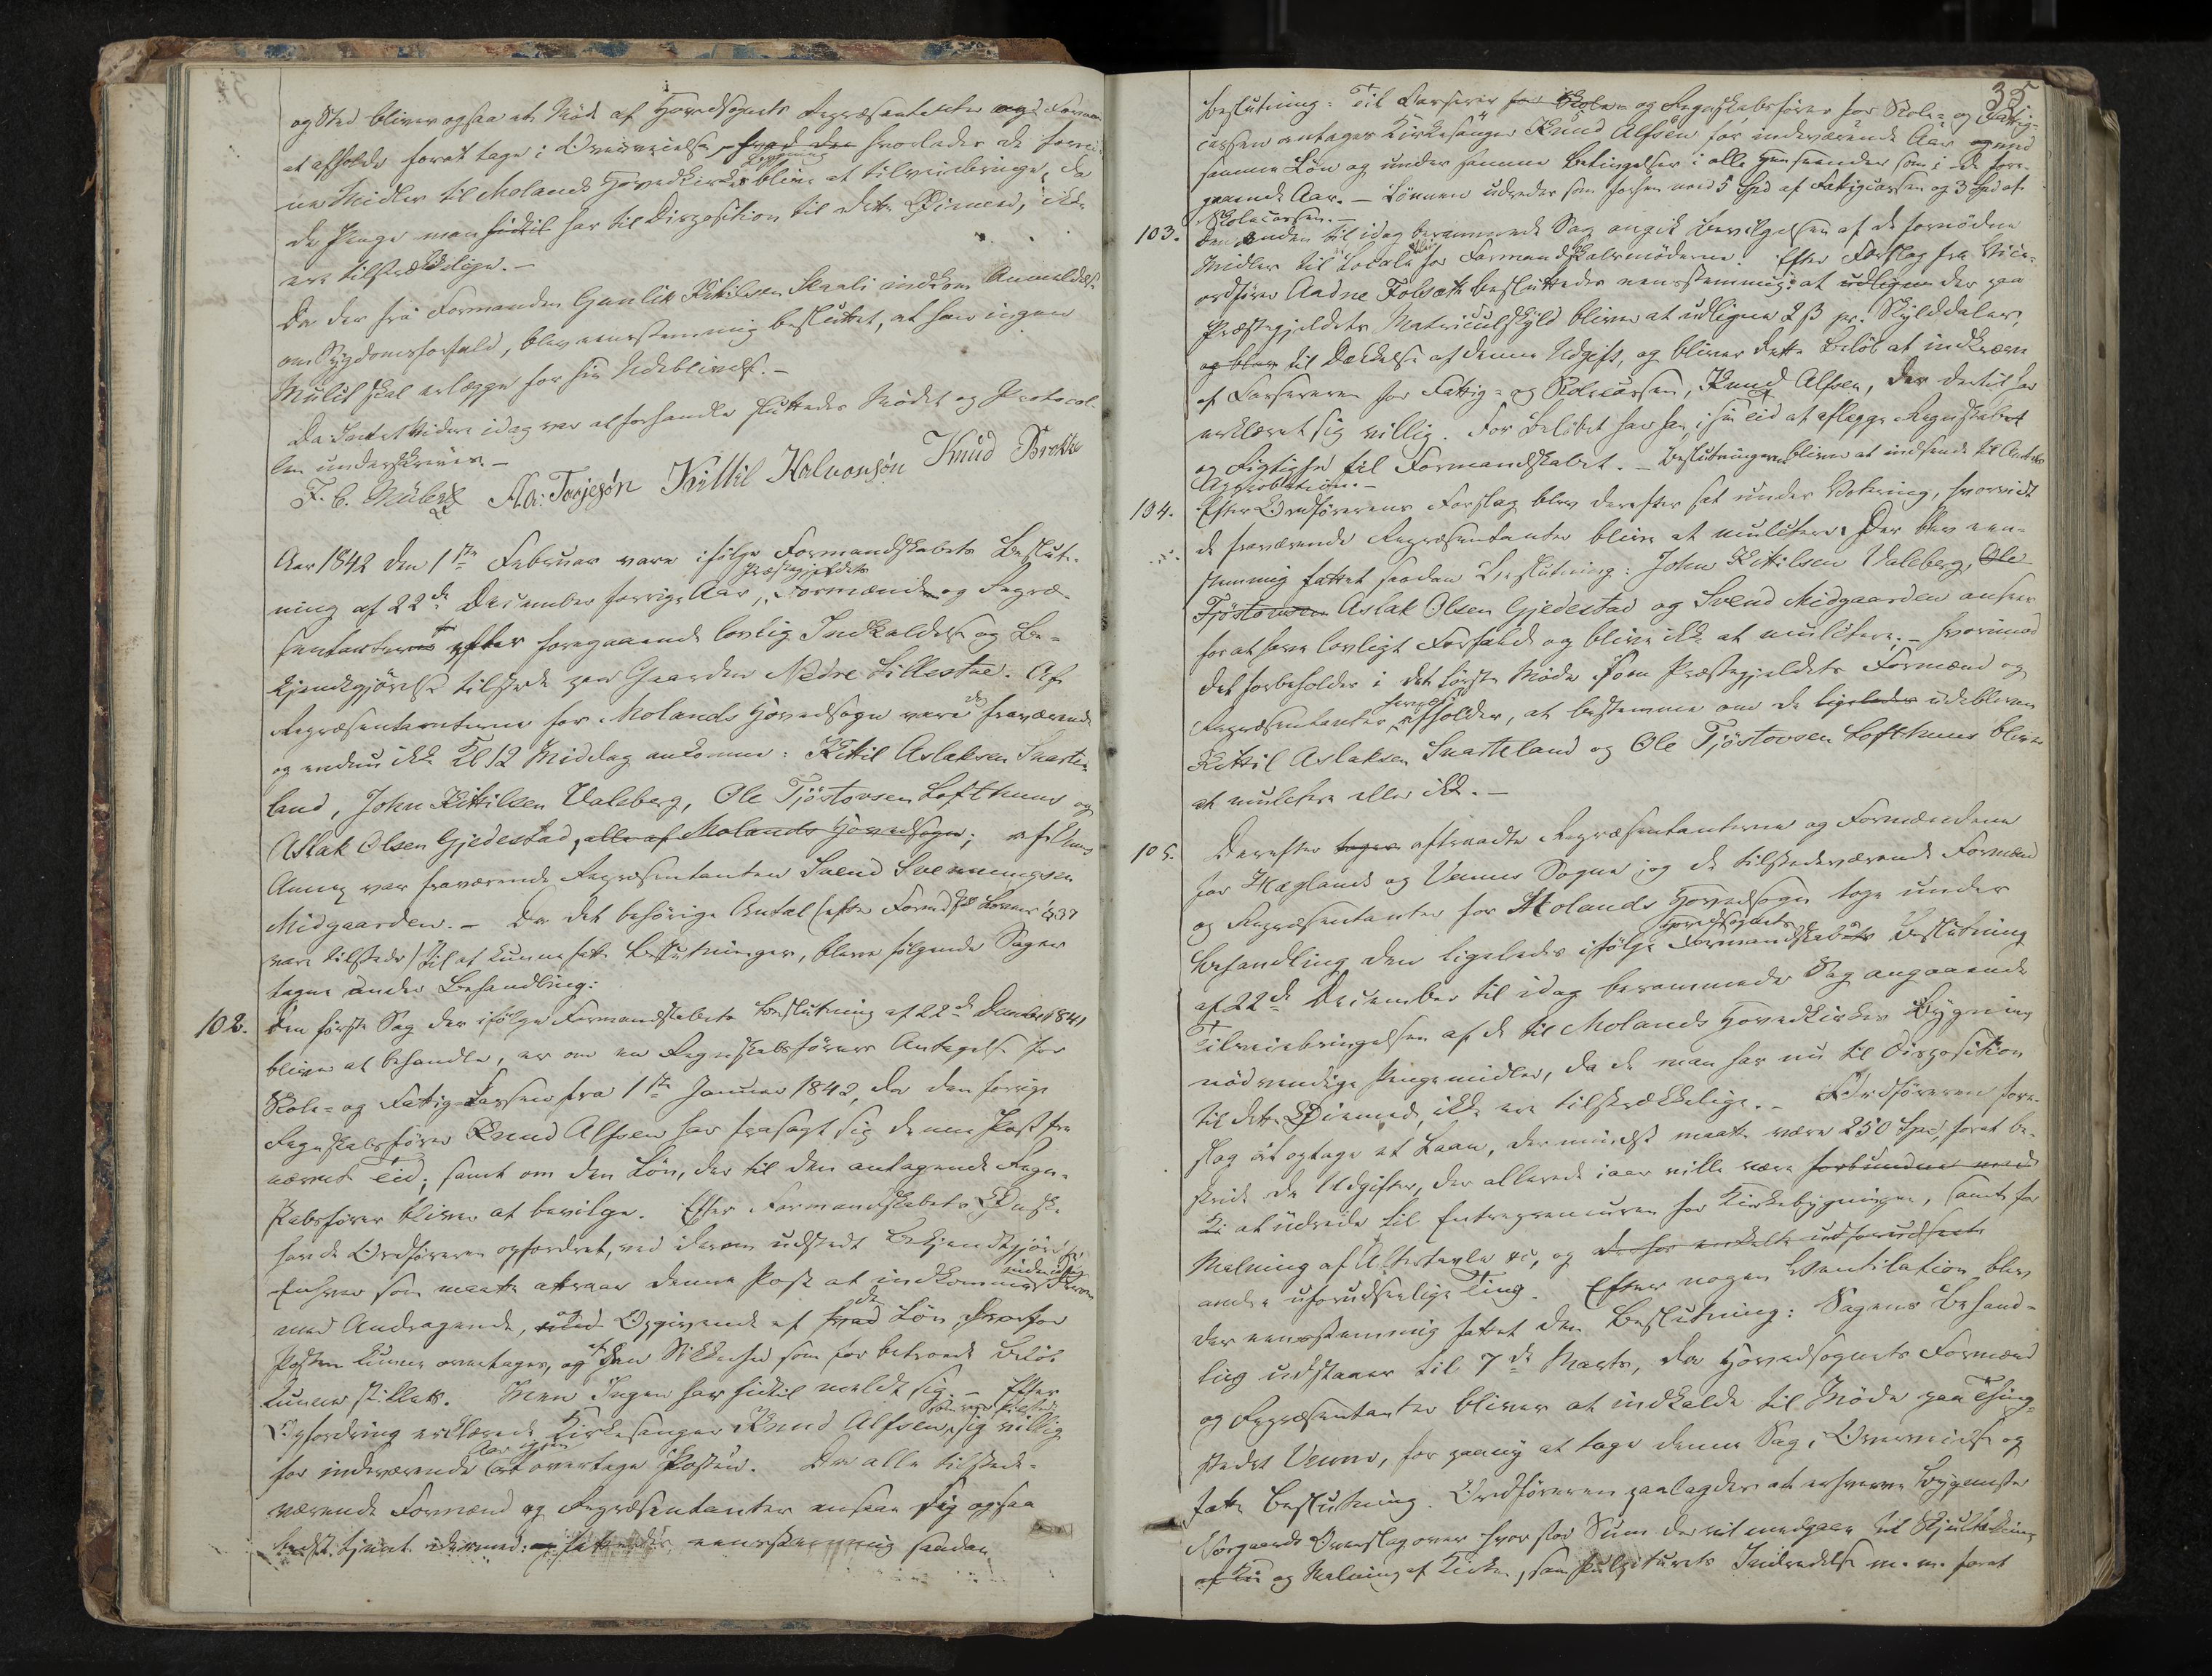 og Sted bliver ogsaa et Möde af Hovedsognets Repræsentanter og Formænd
at afholde forat tage i Overveielse, hvad der hvorledes de fornö-
Bygning
ne Midler til Molands Hovedkirkes blive at tilveiebringe, da
de Penge man hidtil har til Disposition til dette Öiemed, ikke
ere tilstrækkelige. –
Da der fra Formanden Gunlik Kittilsen Skaali indkom Anmeldelse
om Sygdomsforfald, blev eensstemmig besluttet, at han ingen
Mulct skal erlægge for sin Udeblivelse. –
Da Intet Videre idag var at forhandle sluttedes Mödet og Protocol-
len underskreven. –
Aa: Torjesön Kittil Halvorsön Knud Brokke
Aar 1842 den 1ste Februar vare ifölge Formandskabets Beslut-
Præstegjeldets
ning af 22de December forrige Aar, Formænd og Repræ-
sentanter efter foregaaende lovlig Indkaldelse og Be-
kjendtgjörelse tilstede paa Gaarden Nedre Lillestue. Af
Repræsentanterne for Molands Hovedsogn vare fraværende
og endnu ikke Kl 12 Middag ankomne: Kittil Aslaksen Snarte-
land, John Kittilsen Valeberg, Ole Tjöstovsen Lofthuus og
Aslak Olsen Gjedestad, alle af Molands Hovedsogn; af Veums
Annex var fraværende Repræsentanten Svend Svenningsen
Midgaarden. – Da det behörige Antal (efter Formdsk Lovens § 37
vare tilstede) til at kunne fatte Beslutninger, bleve fölgende Sager
tagne under Behandling:
102. Den förste Sag der ifölge Formandskabets Beslutning af 22de December 1841
bliver at behandle, er om en Regnskabsförers Antagelse for
Skole- og Fattig-Cassen fra 1ste Januar 1842, da den forrige
Regnskabsförer Knud Alfsen har frasagt sig denne Post fra
nævnte Tid; samt om den Lön, der til den antagende Regn-
skabsförer bliver at bevilge. Efter Formandskabets Önske
havde Ordföreren opfordret, ved derom udstedt Bekjendtgjörelse,
Enhver som maatte attraae denne Post at indkomme
med Andragende, og Opgivende af den Lön, hvorfor
Posten kunne overtages, og den Sikkerhed som for betroede Belöb
kunne stilles. Men Ingen har hidtil meldt sig. – Efter
Opfordring erklærede Kirkesanger Knud Alfsen, sig villig
Aar igjen
for indeværende at overtage Posten. Da alle tilstede-
værende Formænd og Repræsentanter ansaae sig ogsaa
bedst tjent dermed: fattedes eensstemmig saadan
35
Beslutning: Til Casserer for Skole- og Regnskabsförer for Skole- og Fattig-
cassen antages Kirkesanger Knud Alfsen for indeværende Aar og med
samme Lön og under samme Betingelser i alle Henseender som i de fore-
gaaende Aar. – Lönnen udredes som forhen med 5 Spd af Fattigcassen og 3 Spd af
Skolecassen. –
103. Den anden til idag berammede Sag angik Bevilgelsen af de fornödne
Midler til Locale for Formandskabsmöderne. Efter Forslag fra Vice-
ordförer Aadne Folsæth besluttedes eensstemmig: at udlignes der paa
Præstegjeldets Matriculskyld bliver at udligne 2 ß pr. Skylddaler,
og blev til Dækkelse af denne Udgift, og bliver dette Belöb at indkræve
af Casserer for Fattig- og Skolecassen, Knud Alfsen, der dertil har
erklæret sig villig. For Belöbet har han i sin Tid at aflægge Regnskabet
og Rigtighed til Formandskabet. – Beslutningen bliver at indsende til Amtets
Approbation. –
104. Efter Ordförerens Forslag blev derefter sat under Votering, hvorvidt
de fraværende Repræsentanter blive at mulctere. Der blev een-
stemmig fattet saadan Beslutning: John Kittilsen Valeberg, Ole
Tjöstovsen Aslak Olsen Gjedestad og Svend Midgaarden ansees
for at have lovligt Forfald og blive ikke at mulctere. – hvorimod
det forbeholdes i det förste Möde som Præstegjeldets Formænd og
Repræsentanter afholder, at bestemme om de ligeledes udeblevne
Kittil Aslaksen Snarteland og Ole Tjöstovsen Lofthuus blive
at mulctere eller ikke. –
105. Derefter toges aftraadte Repræsentanterne og Formændene
for Hæglands og Veums Sogne, og de tilstedeværende Formænd
og Repræsentanter for Molands Hovedsogn toge under
Hovedsognets
Behandling den ligeledes ifölge Formandskabets Beslutning
af 22de December til idag berammede Sag angaaende
Tilveiebringelsen af de til Molands Hovedkirkes Bygning
nödvendige Pengemidler, da de man har nu til Disposition
til dette Öiemed, ikke ere tilstrækkelige. – Ordföreren fore-
slog at optage et Laan, der mindst maatte være 250 Spd, forat be-
stride de Udgifter, der allerede iaar ville være forbundne med
at udrede til Entrepreneuren for Kirkebygningen, samt for
Malning af Altertavle &c, og
andre uforudseelige Ting. Efter nogen Ventilation blev
der eensstemmig fattet den Beslutning: Sagens Behand-
ling udstaaer til 7de Marts, da Hovedsognets Formænd
og Repræsentanter bliver at indkalde til Möde paa Thing-
stedet Veum, for paany at tage denne Sag i Overveielse og
fatte Beslutning. Ordföreren paalagdes at erhverve Bygmester
Norgaards Overslag over hvor stor Sum der vil medgaae til
og Malning af Kirken, samt Pulpiturets Indredelse m. m. forat